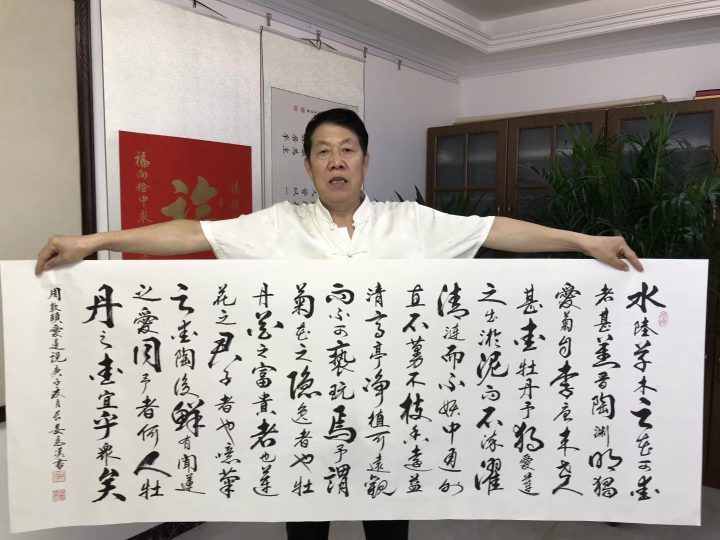 水陸草木之花可愛
者甚蕃晉陶淵明獨
愛菊自李唐来世人
甚愛牡丹予獨愛蓮
之出淤泥而不染濯
清漣而不妖中通外
直不蔓不枝香遠益
清亭亭淨植可遠觀
而不可褻玩焉予謂
菊花之隐逸者也牡
丹花之富貴者也蓮
花之君子者也噫菊
之愛陶後鮮有聞蓮
之愛同予者何人牡
丹之愛宜乎衆矣
周敦頤愛蓮説庚子春月書
福向儉中来